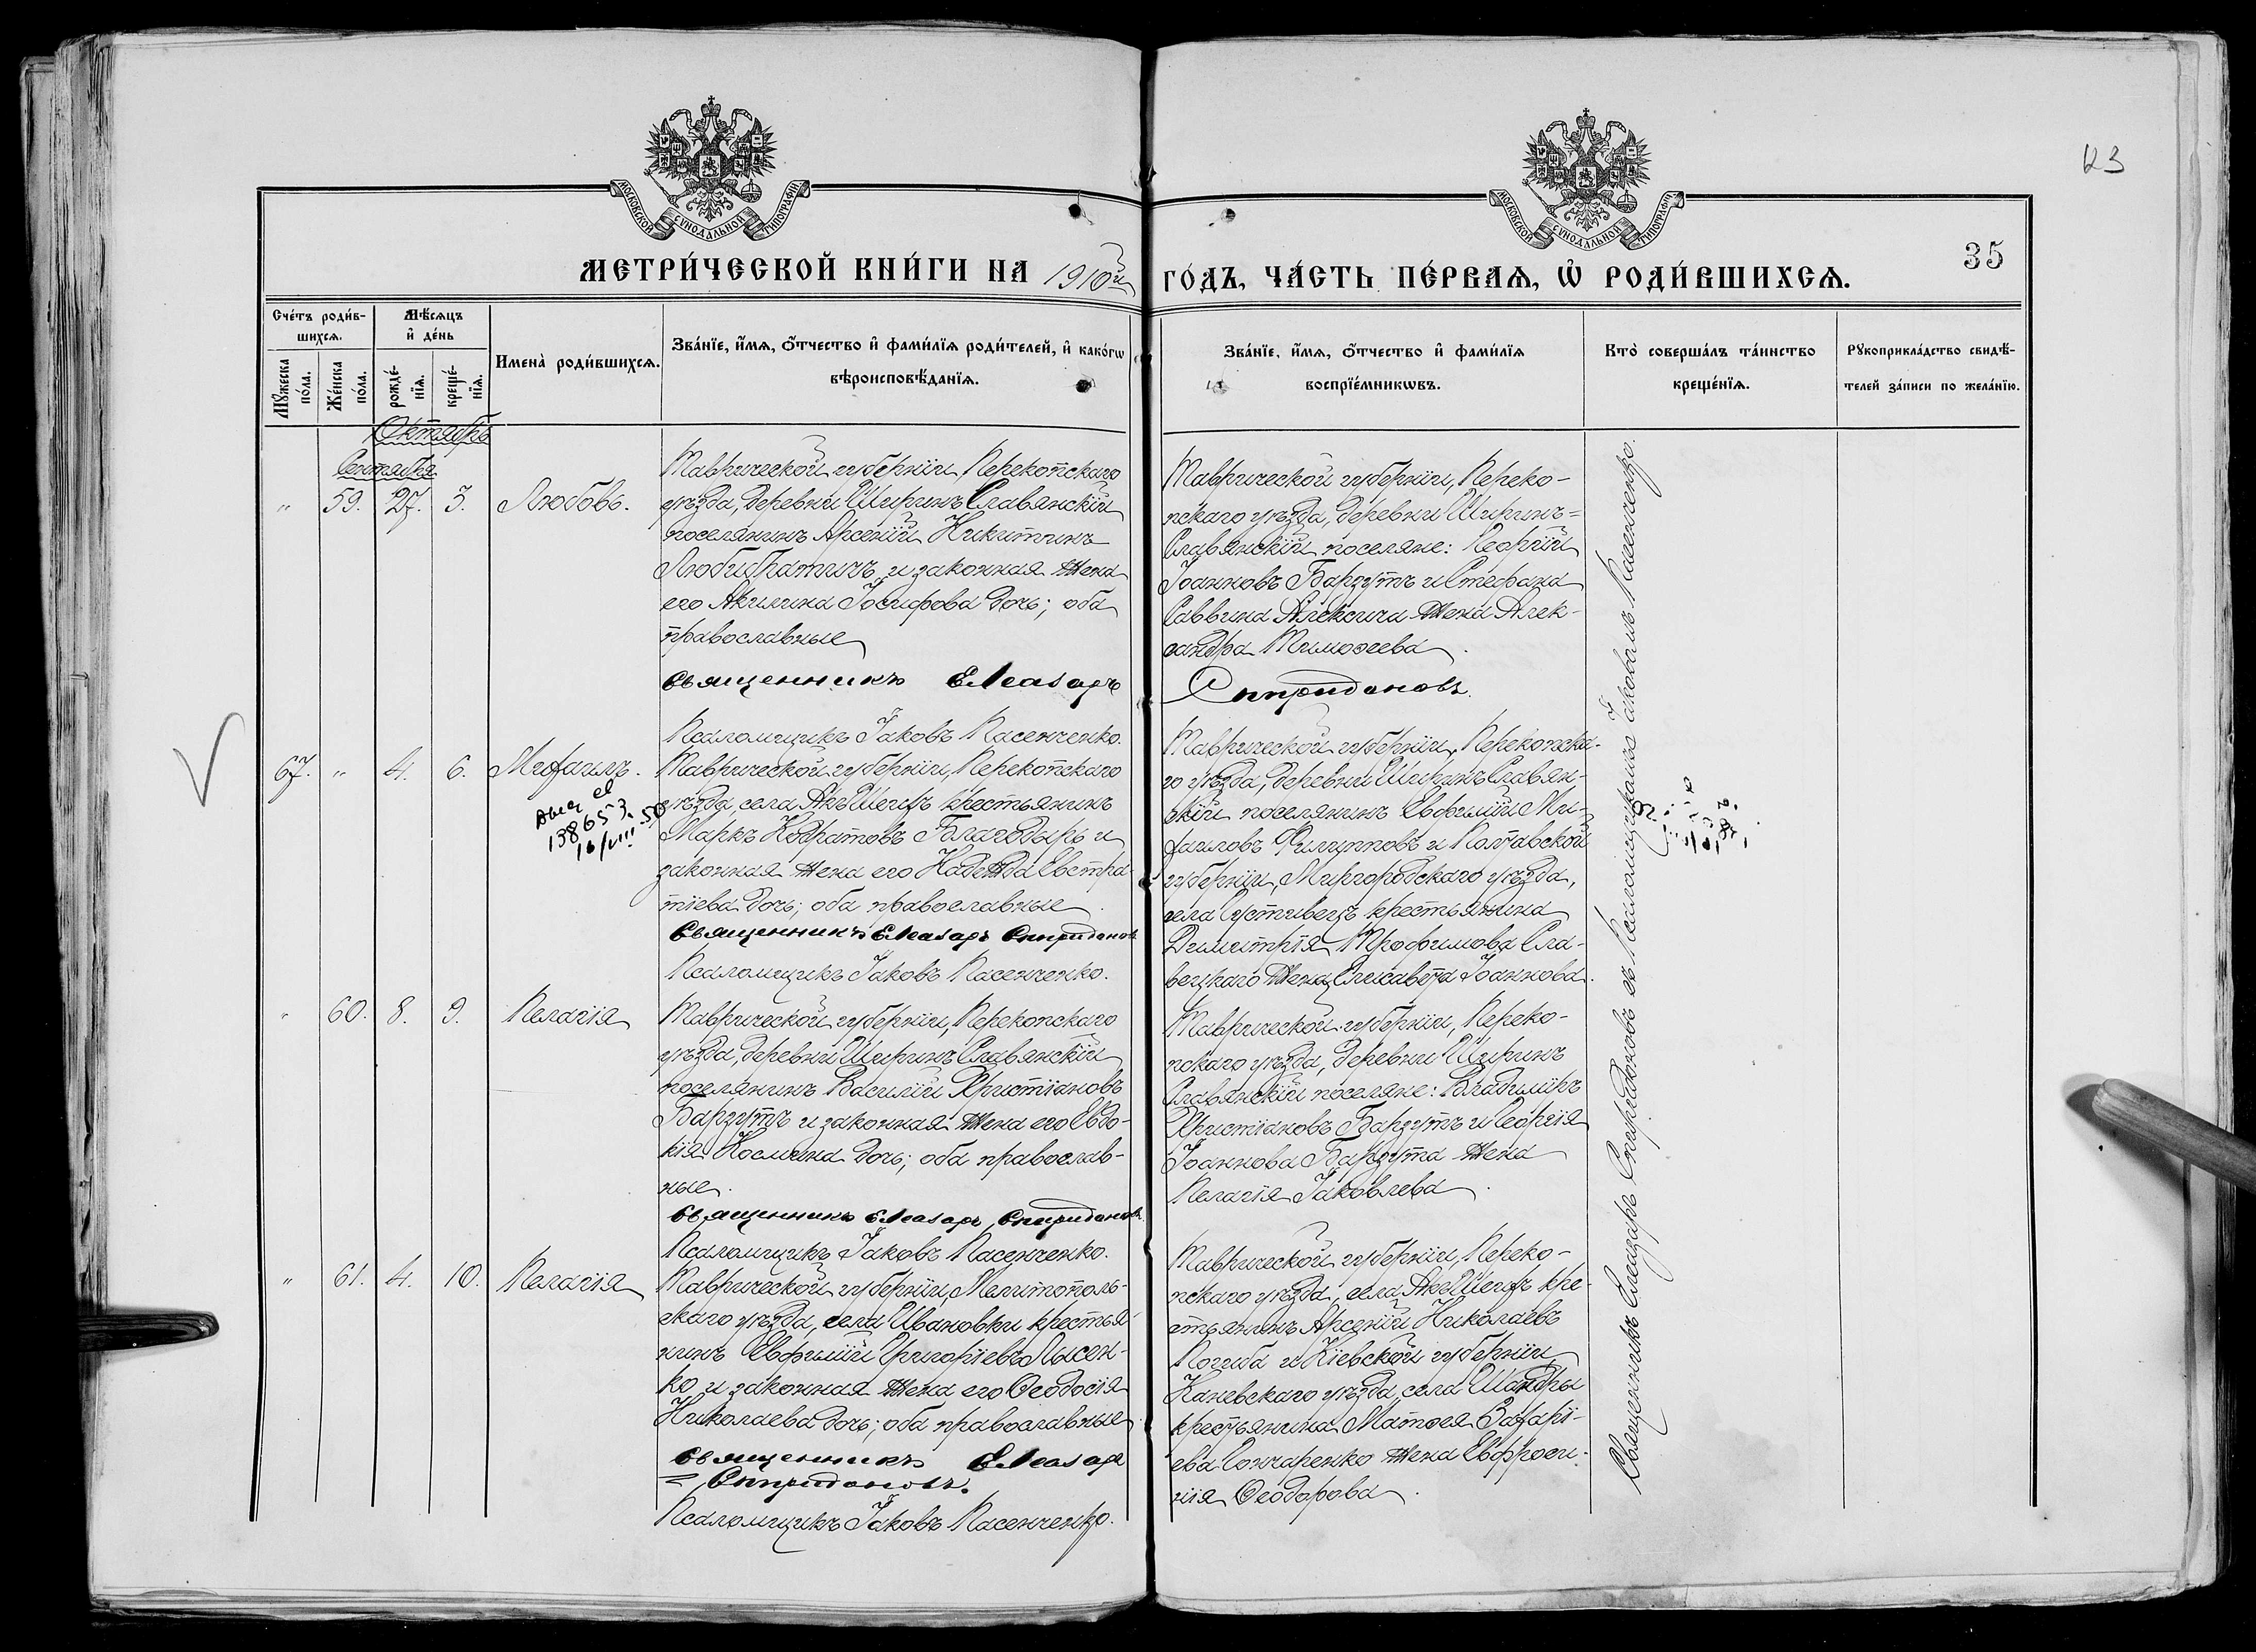 123
МОСКОВСКОЙ СѴНОДАЛЬНОЙ ТИПОГРАФІИ
МОСКОВСКОЙ СѴНОДАЛЬНОЙ ТИПОГРАФІИ
35
МЕТРИ́ЧЕСКОЙ КНИ́ГИ НА 1910й ГО́ДЪ, ЧА́СТЬ ПЕ́РВАѦ, Ѡ҆ РОДИ́ВШИХСѦ.
Сче́тъ роди́в-
шихсѧ.
Мѣ́сѧцъ
и҆ де́нь
Мꙋ́жеска по́ла.
Же́нска по́ла.
рожде́-нїѧ.
креще́-нїѧ.
Имена̀ роди́вшихсѧ.
Зва́нїе, и҆́мѧ, ѻ҆́тчество и҆ фами́лїѧ роди́телей, и҆ како́гѡ
вѣроисповѣ́данїѧ.
Зва́нїе, и҆́мѧ, ѻ҆́тчество и҆ фами́лїѧ
воспрїе́мникѡвъ.
Кто̀ соверша́лъ та́инство
креще́нїѧ.
Рꙋкоприкла́дство свидѣ́-
телей за́писи по жела́нїю.
Октябрь
Сентября
" 59. 27. 3. Любовь.
Таврической губерніи, Перекопскаго
уѣзда, деревни Ширинъ Славянскій
поселянинъ Арсеній Никитинъ
Любибратичъ и законная жена
его Акилина Іосифова дочь; оба
православные
Священникъ Елеазаръ
Спиридоновъ.
Псаломщикъ Іаковъ Пасенченко.
Таврической губерніи, Переко-
пскаго уѣзда, деревни Ширинъ=
Славянскій поселяне: Георгій
Іоанновъ Барзутъ и Стефана
Саввина Алексича жена Алек-
сандра Тимоѳеева.
67. " 4. 6. Михаилъ.
138653.
16/VIII 50
Таврической губерніи, Перекопскаго
уѣзда, села Акъ Шеихъ крестьянинъ
Маркъ Кодратовъ Благодыръ и
законная жена его Надежда Евстра-
тіева дочь; оба православные.
Священникъ Елеазаръ Спиридоновъ
Псаломщикъ Іаковъ Пасенченко.
Таврической губерніи, Перекопска-
го уѣзда, деревни Ширинъ Славян-
скій поселянинъ Евфимій Ми-
хаиловъ Филипповъ и Полтавской
губерніи, Миргородскаго уѣзда,
села Сустивецъ крестьянина
Димитрія Трофимова Сла-
вецкаго жена Елисавета Іоаннова.
" 60. 8. 9. Пелагія
Таврической губерніи, Перекопскаго
уѣзда, деревни Ширинъ Славянскій
поселянинъ Василій Христіановъ
Барзутъ и законная жена его Евдо-
кія Космина дочь; оба православ-
ные.
Священникъ Елеазаръ Спиридоновъ
Псаломщикъ Іаковъ Пасенченко.
Таврической губерніи, Переко-
пскаго уѣзда, деревни Ширинъ
Славянскій поселяне: Владиміръ
Христіановъ Барзутъ и Георгія
Іоаннова Барзута жена
Пелагія Іаковлева.
" 61. 4. 10. Пелагія
Таврической губерніи, Мелитополь-
скаго уѣзда, села Ивановки крестья-
нинъ Евфимій Григоріевъ Лысен-
ко и законная жена его Ѳеодосія
Николаева дочь; оба православные.
Священникъ Елеазаръ
Спиридоновъ.
Псаломщикъ Іаковъ Пасенченко.
Таврической губерніи, Переко-
пскаго уѣзда, села Акъ Шеихъ кре-
стьянинъ Арсеній Николаевъ
Погиба и Кіевской губерніи
Каневскаго уѣзда, села Шандры
крестьянина Матѳея Захарі-
ева Гончаренко жена Евфроси-
нія Ѳеодорова.
Священникъ Елеазаръ Спиридоновъ съ Псаломщикомъ Іаковомъ Пасенченко.